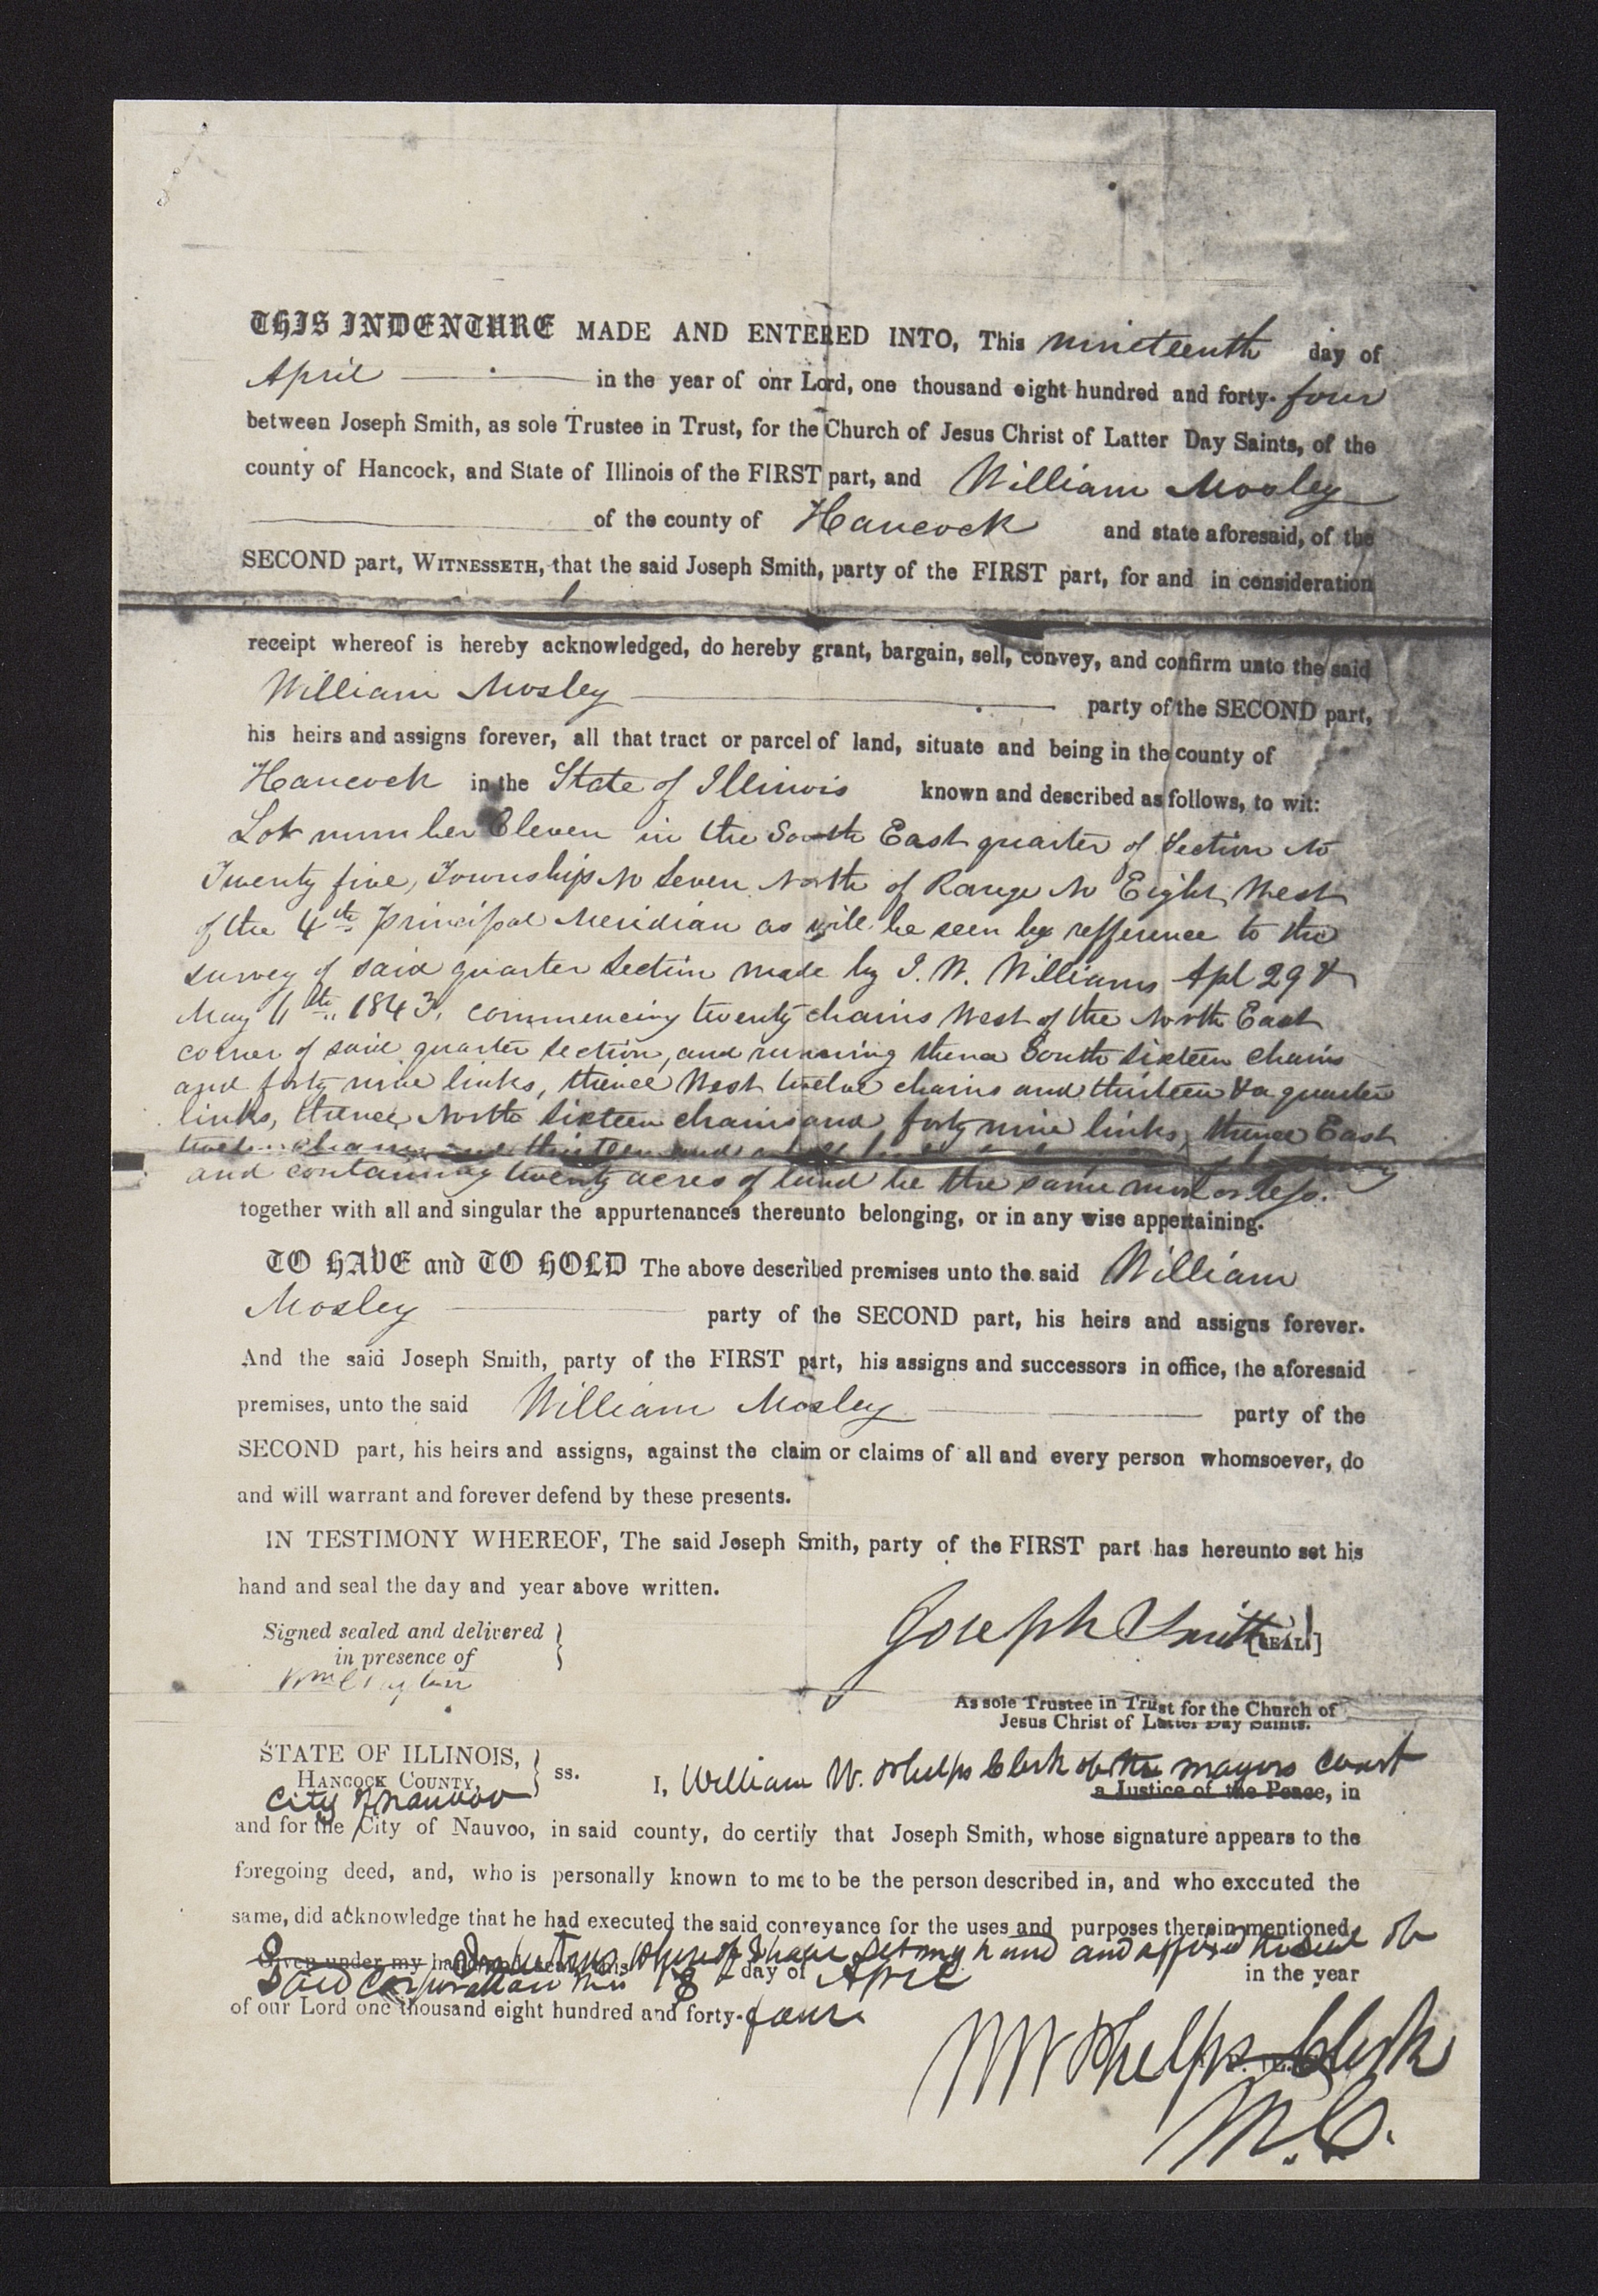 THIS INDENTURE MADE AND ENTERED INTO, This nineteenth day of
April in the year of onr Lord, one thousand eight hundred and forty-four
between Joseph Smith, as sole Trustee in Trust, for the Church of Jesus Christ of Latter Day Saints, of the
county of Hancock, and State of Illinois of the FIRST part, and William Mosley
of the county of Hancock and state aforesaid, of the
SECOND part, WITNESSETH, that the said Joseph Smith, party of the FIRST part, for and in consideration
receipt whereof is hereby acknowledged, do hereby grant, bargain, sell, convey, and confirm unto the said
William Mosley party of the SECOND part,
his heirs and assigns forever, all that tract or parcel of land, situate and being in the county of
Hancock in the State of Illinois known and described as follows, to wit:
Lot number Eleven in the South East quarter of Section No
Twenty five, Township No Seven North of Range No Eight West
of the 4th Principal Meridian as will be seen by refference to the
survey of said quarter Section made by J. W. Williams Apl 29 &
May 11th 1843, commencing twenty chains West of the North East
corner of said quarter section, and running thence South sixteen chains
and forty nine links, thence West twelve chains and thirteen & a quarter
links, thence North sixteen chains and forty nine links, thence East
chains and thirteen and a
and containing twenty acres of land be the same more or less.
together with all and singular the appurtenances thereunto belonging, or in any wise appertaining.
TO HAVE and TO HOLD The above described premises unto the said William
Mosley party of the SECOND part, his heirs and assigns forever.
And the said Joseph Smith, party of the FIRST part, his assigns and successors in office, the aforesaid
premises, unto the said William Mosley party of the
SECOND part, his heirs and assigns, against the claim or claims of all and every person whomsoever, do
and will warrant and forever defend by these presents.
IN TESTIMONY WHEREOF, The said Joseph Smith, party of the FIRST part has hereunto set his
hand and seal the day and year above written.
Signed sealed and delivered
in presence of
Wm Clayton
Joseph Smith [SEAL]
As sole Trustee in Trust for the Church of
Jesus Christ of Latter Day Saints.
STATE OF ILLINOIS,
HANCOCK COUNTY, ss.
City of Nauvoo
I, William W. Phelps Clerk of the mayors court
a Justice of the Peace, in
and for the City of Nauvoo, in said county, do certify that Joseph Smith, whose signature appears to the
foregoing deed, and, who is personally known to me to be the person described in, and who executed the
same, did acknowledge that he had executed the said conveyance for the uses and purposes therein mentioned.
In testimony whereof I have set my hand and affixed the seal of
Given under my hand
said Corporation this 18 day of April in the year
of our Lord one thousand eight hundred and forty-four
W W Phelps Clerk
M. C.